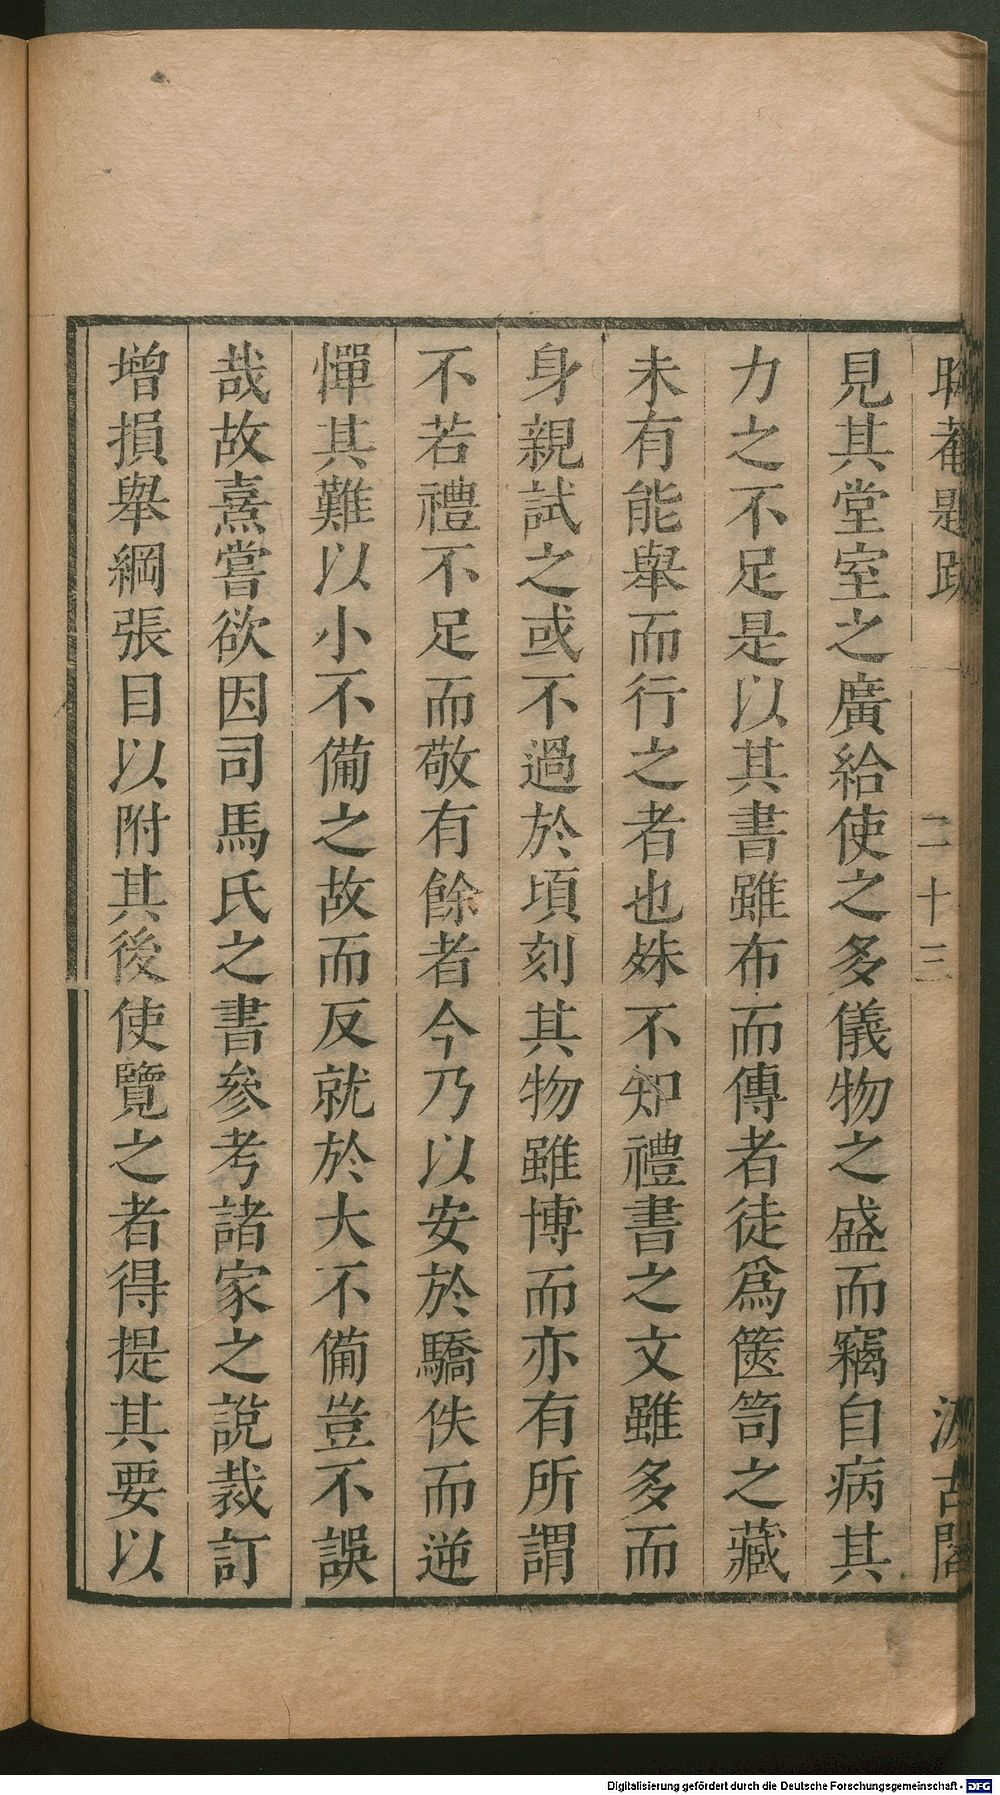 晦菴題跋 一 二十三 汲古閣
見其堂室之廣給使之多儀物之盛而竊自病其
力之不足是以其書雖布而傳者徒爲篋笥之藏
未有能舉而行之者也殊不知禮書之文雖多而
身親試之或不過於頃刻其物雖博而亦有所謂
不若禮不足而敬有餘者今乃以安於驕佚而逆
憚其難以小不備之故而反就於大不備豈不誤
哉故熹嘗欲因司馬氏之書參考諸家之說裁訂
增損舉綱張目以附其後使覽之者得提其要以
Digitalisierung gefördert durch die Deutsche Forschungsgemeinschaft - DFG